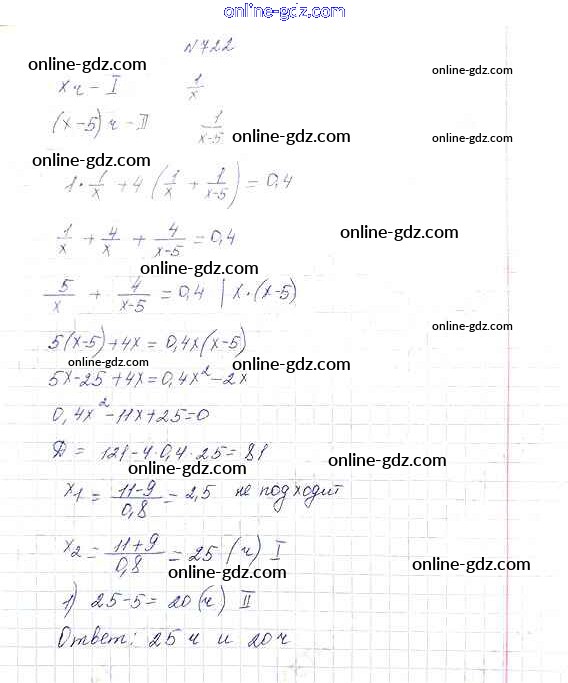 online-gdz.com
№722
online-gdz.com
online-gdz.com
x ч - I 1/x
(x-5) ч - II 1/(x-5)
online-gdz.com
online-gdz.com
online-gdz.com
1·1/x + 4(1/x + 1/(x-5)) = 0,4
online-gdz.com
1/x + 4/x + 4/(x-5) = 0,4
online-gdz.com
5/x + 4/(x-5) = 0,4 | x·(x-5)
online-gdz.com
5(x-5)+4x = 0,4x(x-5)
online-gdz.com
online-gdz.com
5x-25+4x=0,4x²-2x
0,4x²-11x+25=0
Д = 121-4·0,4·25=81
online-gdz.com
online-gdz.com
x₁ = (11-9)/0,8 = 2,5 не подходит
x₂ = (11+9)/0,8 = 25 (ч) I
online-gdz.com
online-gdz.com
1) 25-5= 20(ч) II
Ответ: 25 ч и 20 ч